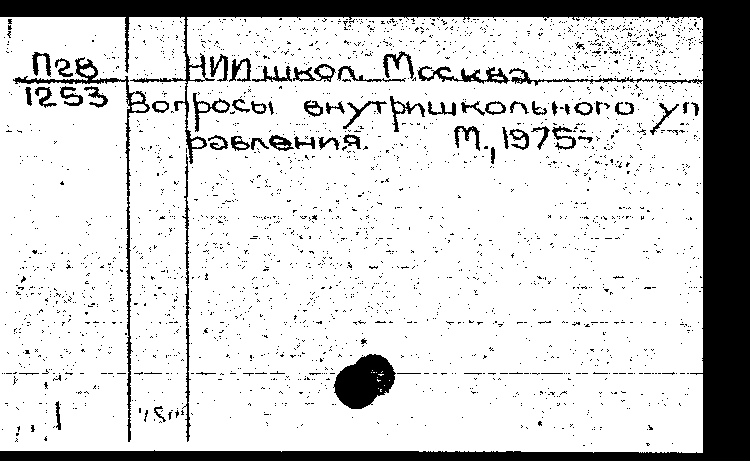 П28 НИИ школ. Москва.
1253 Вопросы внутришкольного уп
равления. М., 1975-